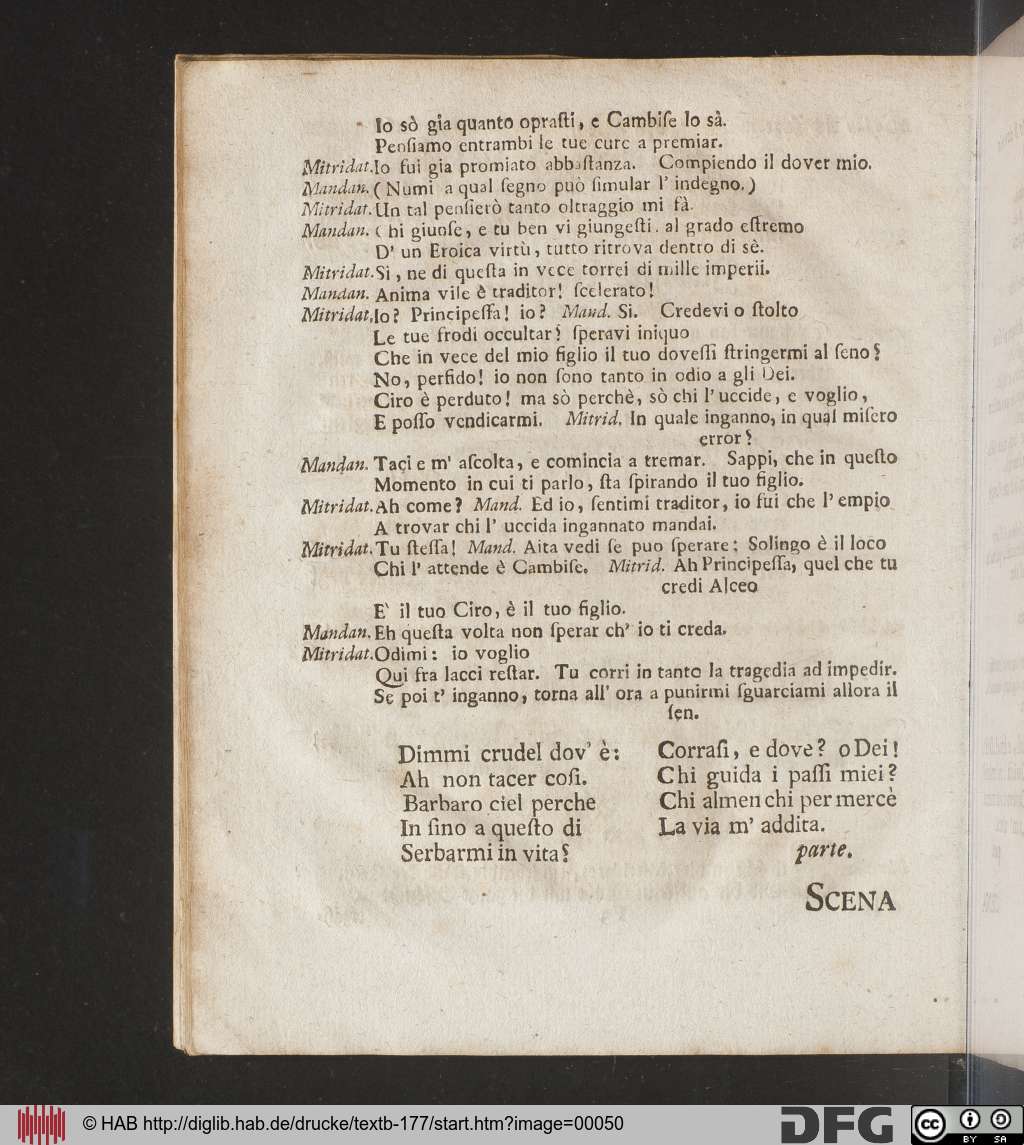 Io sò gia quanto oprasti, e Cambiſe lo sà.
Penſiamo entrambi le tue cure a premiar.
Mitridat. Io fui gia promiato abbaſtanza. Compiendo il dover mio.
Mandan. ( Numi a qual ſegno può ſimular l' indegno. )
Mitridat. Un tal penſierò tanto oltraggio mi fà.
Mandan. Chi giunſe, e tu ben vi giungeſti. al grado eſtremo
D' un Eroica virtù, tutto ritrova dentro di sè.
Mitridat. Si, ne di queſta in vece torrei di mille imperii.
Mandan. Anima vile è traditor! ſcelerato!
Mitridat. Io? Principeſſa! io? Mand. Si. Credevi o ſtolto
Le tue frodi occultar? ſperavi iniquo
Che in vece del mio figlio il tuo doveſſi ſtringermi al ſeno?
No, perfido! io non ſono tanto in odio a gli Dei.
Ciro è perduto! ma sò perchè, sò chi l' uccide, e voglio,
E poſſo vendicarmi. Mitrid. In quale inganno, in qual miſero
error?
Mandan. Taci e m' aſcolta, e comincia a tremar. Sappi, che in queſto
Momento in cui ti parlo, ſta ſpirando il tuo figlio.
Mitridat. Ah come? Mand. Ed io, ſentimi traditor, io fui che l' empio
A trovar chi l' uccida ingannato mandai.
Mitridat. Tu ſteſſa! Mand. Aita vedi ſe puo ſperare; Solingo è il loco
Chi l' attende è Cambiſe. Mitrid. Ah Principeſſa, quel che tu
credi Alceo
E' il tuo Ciro, è il tuo figlio.
Mandan. Eh queſta volta non ſperar ch' io ti creda.
Mitridat. Odimi: io voglio
Qui fra lacci reſtar. Tu corri in tanto la tragedia ad impedir.
Se poi t' inganno, torna all' ora a punirmi ſguarciami allora il
ſen.
Dimmi crudel dov' è:
Ah non tacer coſi.
Barbaro ciel perche
In ſino a queſto di
Serbarmi in vita?
Corraſi, e dove? o Dei!
Chi guida i paſſi miei?
Chi almen chi per mercè
La via m' addita.
parte.
SCENA
© HAB http://diglib.hab.de/drucke/textb-177/start.htm?image=00050
DFG
cc
BY SA